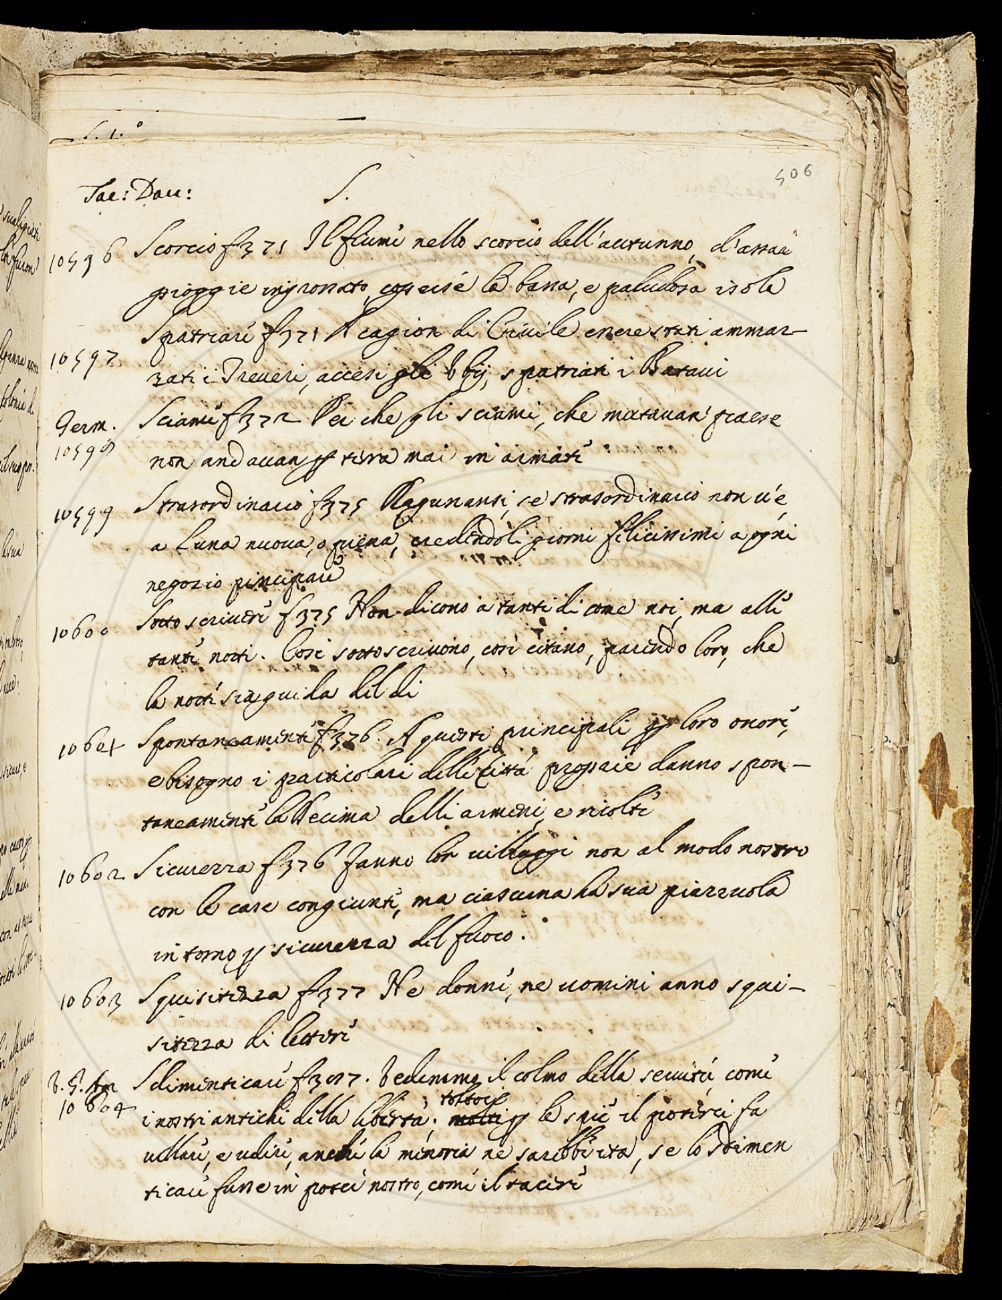 S. 1.º
506
Tac: Dau: S.
10596 Scorcio f 371 Il fiumi nello scorcio dell'autunno, d'assai
pioggie ingrossato, coperse la bassa, e paludosa isola
10597 Spatriare f 371 A cagion di Civile essere stati ammaz-
zati i Treveri, accesi gli Vbij, spatriati i Batavi
Germ.
10598 Sciami f 372 Per che gli sciami, che mutavan paese
non andavan p terra mai in armati
10599 Strasordinario f 375 Ragunansi, se strasordinario non v'è,
a Luna nuova, o piena, credendoli giorni felicissimi a ogni
negozio principiare
10600 Sotto scrivere f 375 Non dicono a tanti dì come noi, ma alle
tante notti. Così sottoscrivono, così citano, parendo loro, che
la notte sia guida del dì
10601 Spontaneamente f 376. A questi principali p loro onore,
e bisogno i particolari delle Città proprie danno spon-
taneamente la Decima delli armeni, e ricolte
10602 Sicurezza f 376 Fanno lor villaggi non al modo nostro
con le case congiunte, ma ciascuna ha sua piazzuola
intorno p sicurezza del fuoco.
10603 Squisitezza f 377 Ne donne, ne uomini anno squi-
sitezza di lettere
10604 Sdimenticare f 387. Vedemmo il colmo della servitù come
i nostri antichi della libertà; toltoci
p le spie il poterci fa
vellare, e udire, anche la memoria ne sarebbe ita, se lo sdimen
ticare fusse in poter nostro, come il tacere